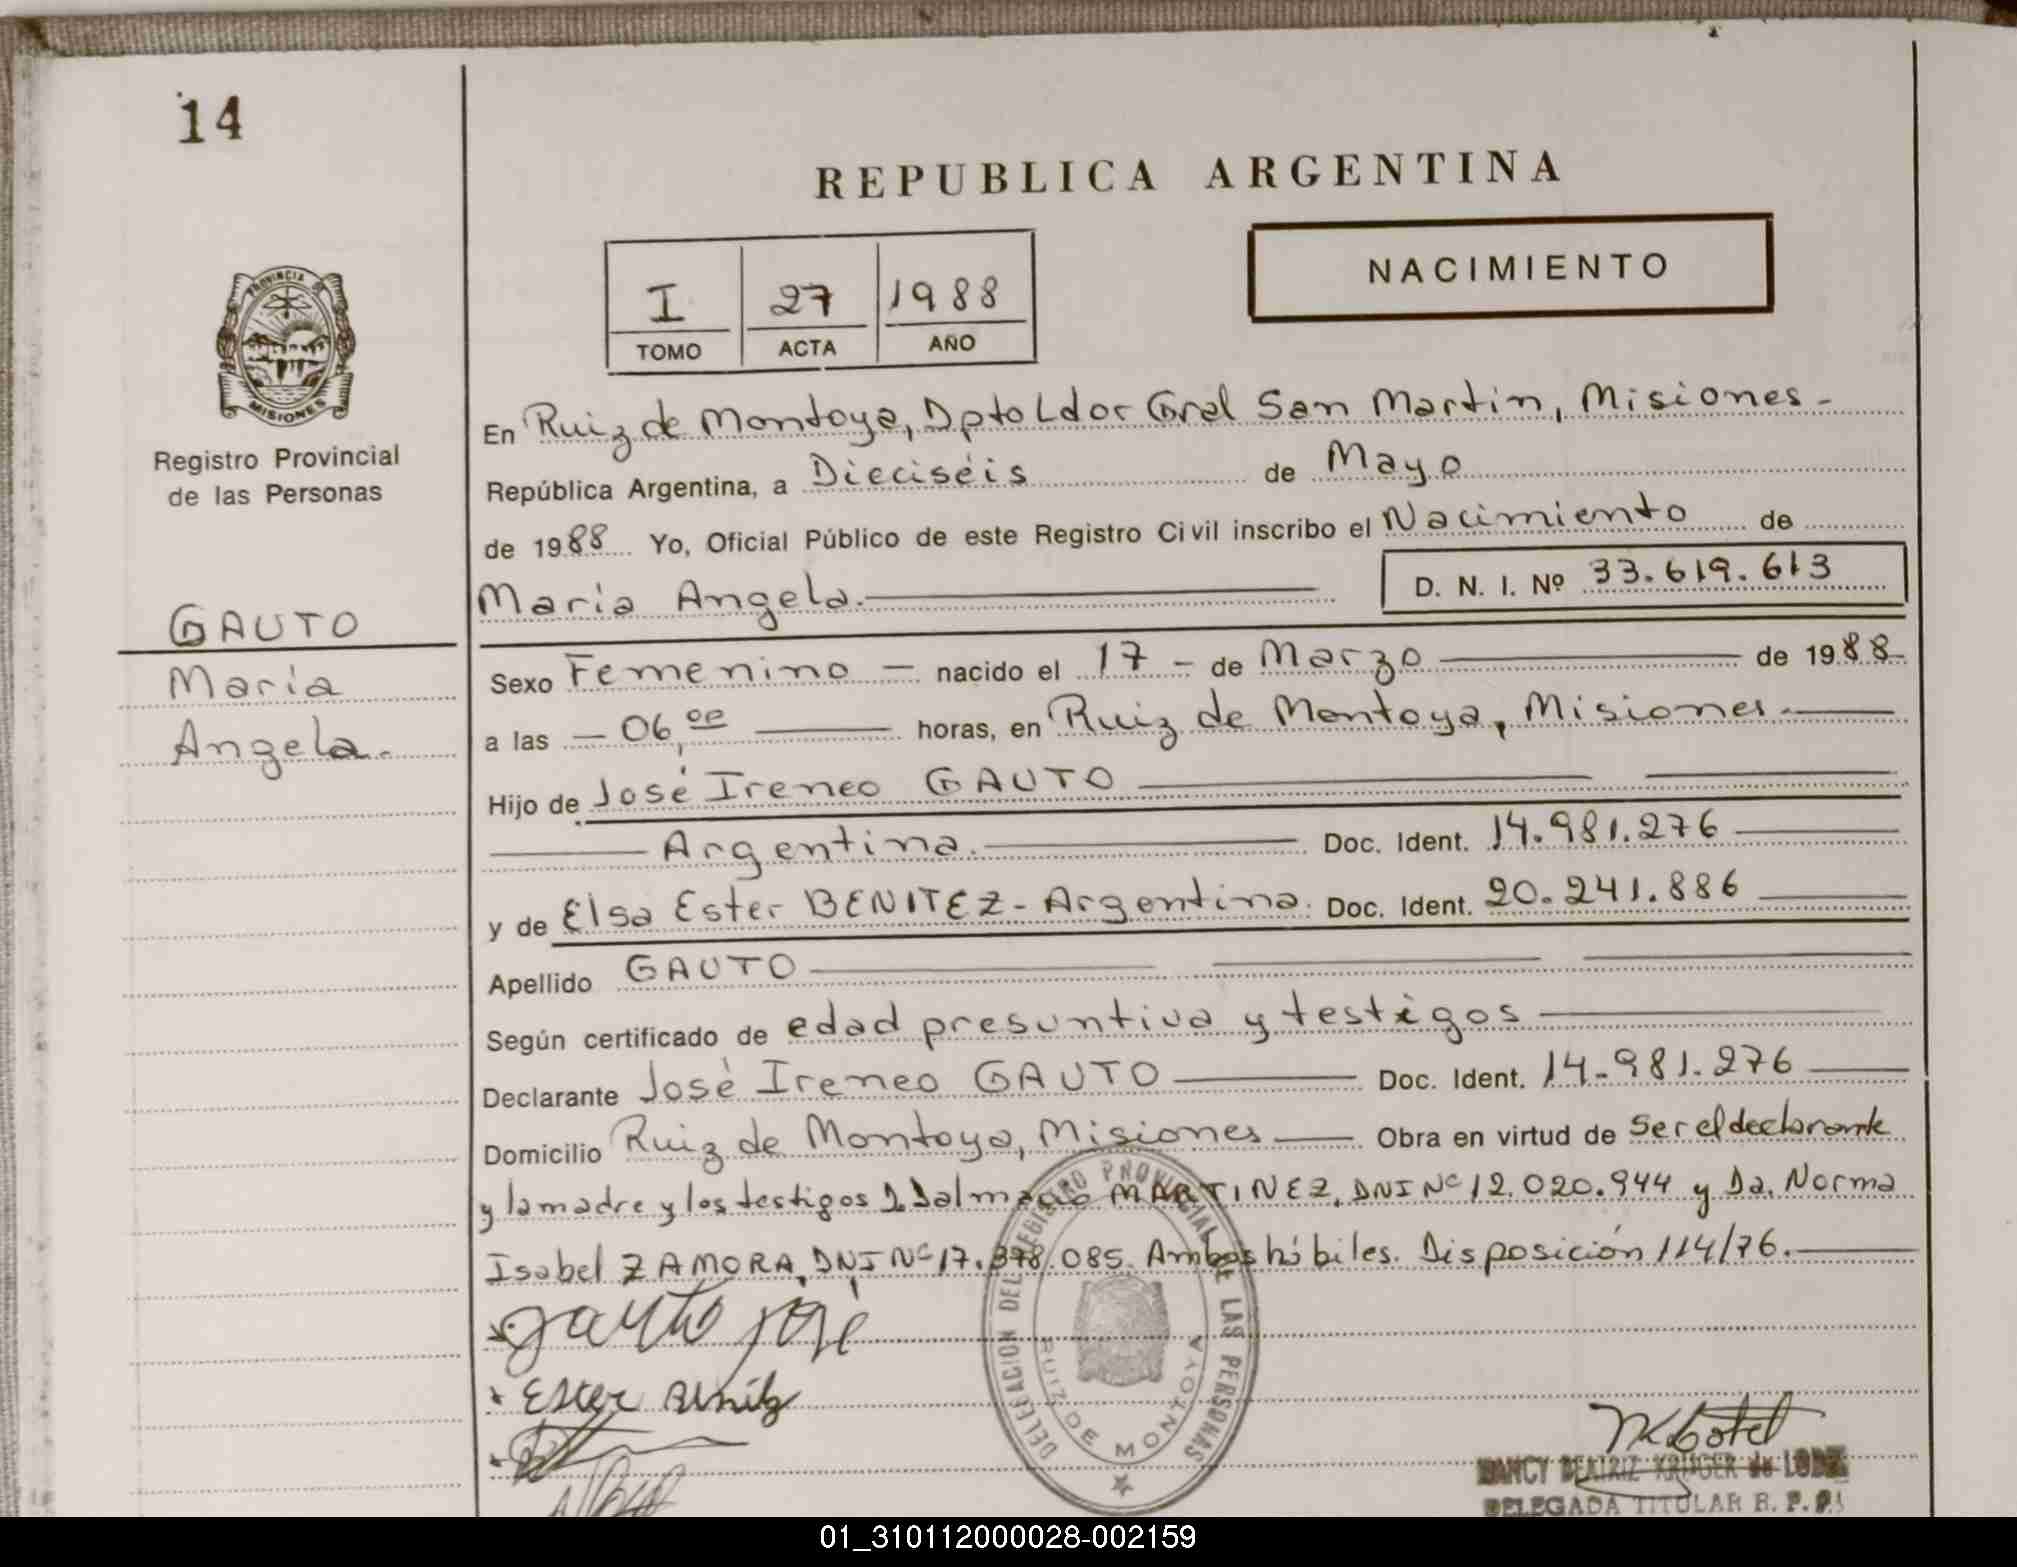 14
REPUBLICA ARGENTINA
NACIMIENTO
I 27 1988
TOMO ACTA AÑO
PROVINCIA DE
MISIONES
Registro Provincial
de las Personas
GAUTO
María
Angela.
En Ruiz de Montoya, Dpto Ldor Gral San Martin, Misiones -
República Argentina, a Dieciséis de Mayo
de 1988 Yo, Oficial Público de este Registro Civil inscribo el Nacimiento de
María Angela. D. N. I. Nº 33.619.613
Sexo Femenino - nacido el 17 - de Marzo de 1988-
a las - 06,00 horas, en Ruiz de Montoya, Misiones.
Hijo de José Ireneo GAUTO
Argentina. Doc. Ident. 14.981.276
y de Elsa Ester BENITEZ - Argentina. Doc. Ident. 20.241.886
Apellido GAUTO
Según certificado de edad presuntiva y testigos
Declarante José Ireneo GAUTO Doc. Ident. 14.981.276
Domicilio Ruiz de Montoya, Misiones Obra en virtud de ser el declarante
y la madre y los testigos D. Dalmacio MARTINEZ, DNI Nº 12.020.944 y Da. Norma
Isabel ZAMORA, DNI Nº 17.378.085. Ambos hábiles. Disposición 114/76.
Gauto José
Ester Benitez
DELEGACION DEL REGISTRO PROVINCIAL DE LAS PERSONAS
RUIZ DE MONTOYA
NANCY BEATRIZ KRUGER de LODZ
DELEGADA TITULAR R. P. P.
01_310112000028-002159